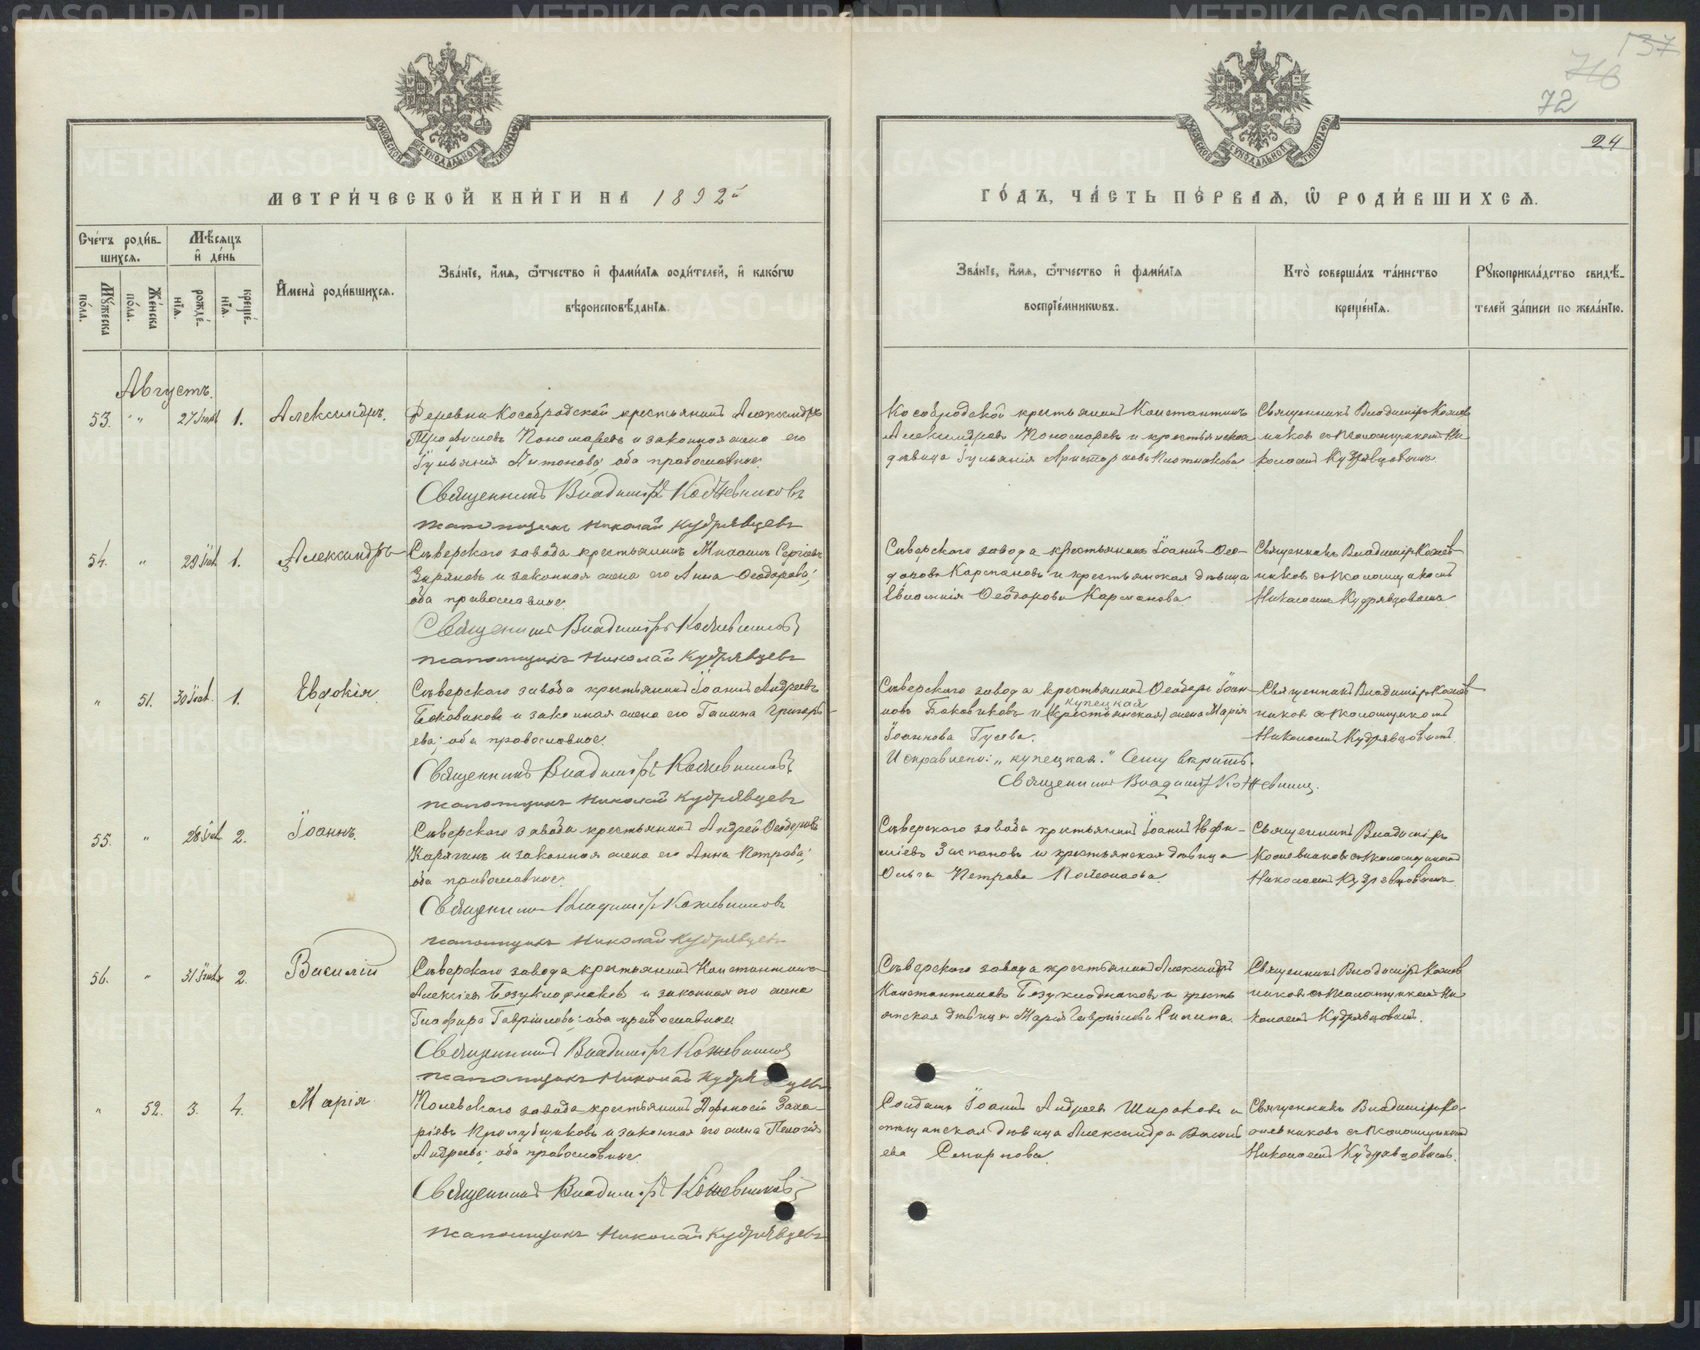 METRIKI.GASO-URAL.RU
137
72
24
МЕТРИ́ЧЕСКОЙ КНИ́ГИ НА 1892й
ГО́ДЪ, ЧА́СТЬ ПЕ́РВАЯ, Ѽ РОДИ́ВШИХСЯ.
Сче́тъ роди́в-
шихся.
Му́жеска по́ла.
Же́нска по́ла.
Мѣ́сяцъ
и҆ де́нь
рожде́нїѧ.
креще́нїѧ.
И҆мена̀ роди́вшихсѧ.
Зва́нїе, и҆́мѧ, ѻ҆́тчество и҆ фами́лїѧ роди́телей, и҆ како́гѡ
вѣроисповѣ́данїѧ.
Зва́нїе, и҆́мѧ, ѻ҆́тчество и҆ фами́лїѧ
воспрїе́мникѡвъ.
Кто̀ соверша́лъ та́инство
креще́нїѧ.
Рꙋкоприкла́дство свидѣ́-
телей за́писи по жела́нїю.
Августъ.
53. " 27 Іюля 1. Александръ.
Деревни Кособродской крестьянинъ Александръ
Пономаревъ и законная жена его
Іульянія Антонова; оба православные.
Священникъ Владиміръ Кожевниковъ
Псаломщикъ Николай Кудрявцевъ
Кособродской крестьянинъ Константинъ
Александровъ Пономаревъ и крестьянская
дѣвица Іульянія
Священникъ Владиміръ Кожев
никовъ съ псаломщикомъ Ни
колаемъ Кудрявцовымъ
54. " 29 Іюля 1. Александръ
Сѣверскаго завода крестьянинъ Михаилъ Сергіевъ
Зыряновъ и законная жена его Анна Ѳеодорова;
оба православные.
Священникъ Владиміръ Кожевниковъ
Псаломщикъ Николай Кудрявцевъ
Сѣверскаго завода крестьянинъ Іоаннъ Ѳео-
доровъ Кармановъ и крестьянская дѣвица
Евѳимія Ѳеодорова Карманова
Священникъ Владиміръ Кожев-
никовъ съ псаломщикомъ
Николаемъ Кудрявцовымъ
" 51. 30 Іюля 1. Евдокія
Сѣверскаго завода крестьянинъ Іоаннъ Андреевъ
Боковиковъ и законная жена его Галина Григорь-
ева; оба православные.
Священникъ Владиміръ Кожевниковъ
Псаломщикъ Николай Кудрявцевъ
Сѣверскаго завода крестьянинъ Ѳеодоръ Іоан-
купецкая
новъ Боковиковъ и (крестьянская) жена Марія
Іоаннова Гусева.
Исправлено: "купецкая." Сему вѣрить.
Священникъ Владиміръ Кожевник.
Священникъ Владиміръ Кожев
никовъ съ псаломщикомъ
Николаемъ Кудрявцовымъ
55. " 28 Іюля 2. Іоаннъ.
Сѣверскаго завода крестьянинъ Андрей Ѳеодоровъ
Карягинъ и законная жена его Анна Петрова;
оба православные.
Священникъ Владиміръ Кожевниковъ
Псаломщикъ Николай Кудрявцевъ
Сѣверскаго завода крестьянинъ Іоаннъ
Заспановъ и крестьянская дѣвица
Ольга Петрова
Священникъ Владиміръ
Кожевниковъ съ псаломщикомъ
Николаемъ Кудрявцовымъ
56. " 31 Іюля 2. Василій
Сѣверскаго завода крестьянинъ Константинъ
Алексіевъ Безукладниковъ и законная его жена
Глафира Гавріилова; оба православные.
Священникъ Владиміръ Кожевниковъ
Псаломщикъ Николай Кудрявцевъ
Сѣверскаго завода крестьянинъ Александръ
Константиновъ Безукладниковъ и кресть
янская дѣвица Марія Гавріилова
Священникъ Владиміръ Кожев
никовъ съ псаломщикомъ Ни
колаемъ Кудрявцовымъ.
" 52. 3. 4. Марія
Полевскаго завода крестьянинъ Аѳанасій Заха-
ріевъ и законная его жена Пелагія
Андреева; оба православные.
Священникъ Владиміръ Кожевниковъ
Псаломщикъ Николай Кудрявцевъ
Солдатъ Іоаннъ Андреевъ Широковъ и
мѣщанская дѣвица Александра Василь
ева Смирнова.
Священникъ Владиміръ Ко-
жевниковъ съ псаломщикомъ
Николаемъ Кудрявцовымъ.